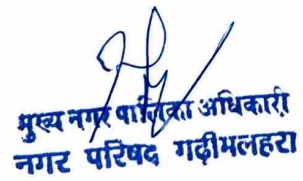 मुख्य नगर पालिका अधिकारी
नगर परिषद गढ़ीमलहरा